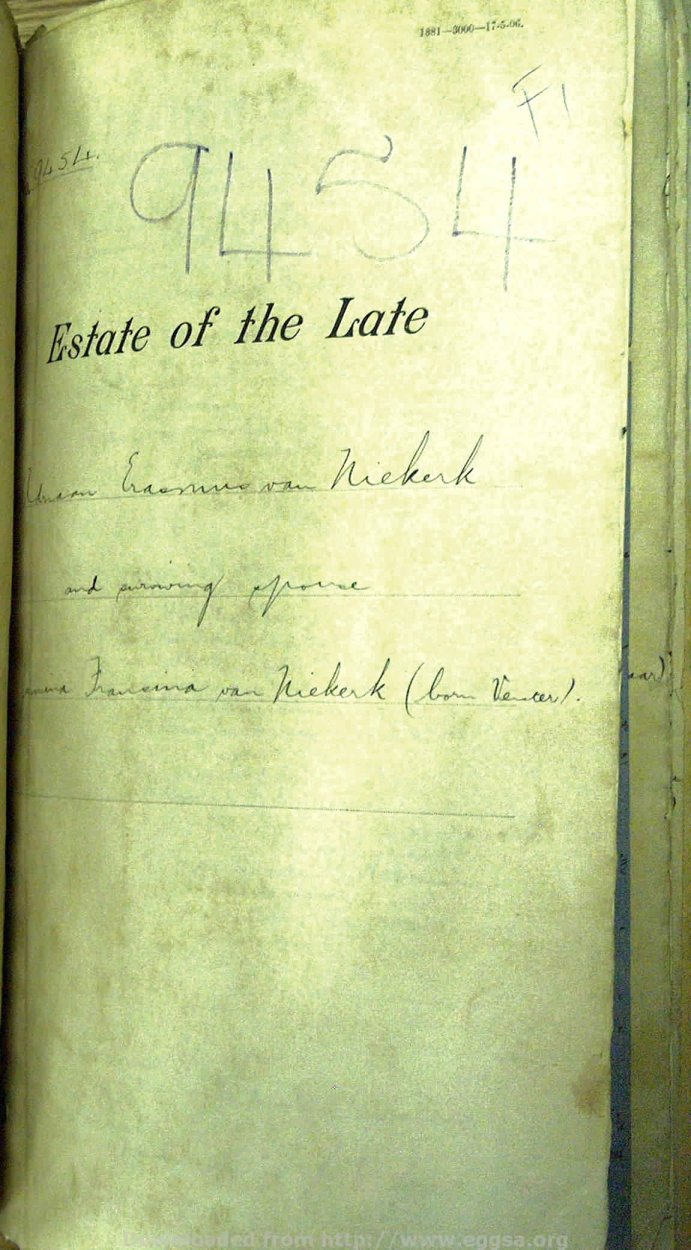 1881—3000—17-5-06.
F1
9454.
9454
Estate of the Late
Erasmus van Niekerk
and surviving spouse
Fransina van Niekerk (born Venter).
aar)
Downloaded from http://www.eggsa.org